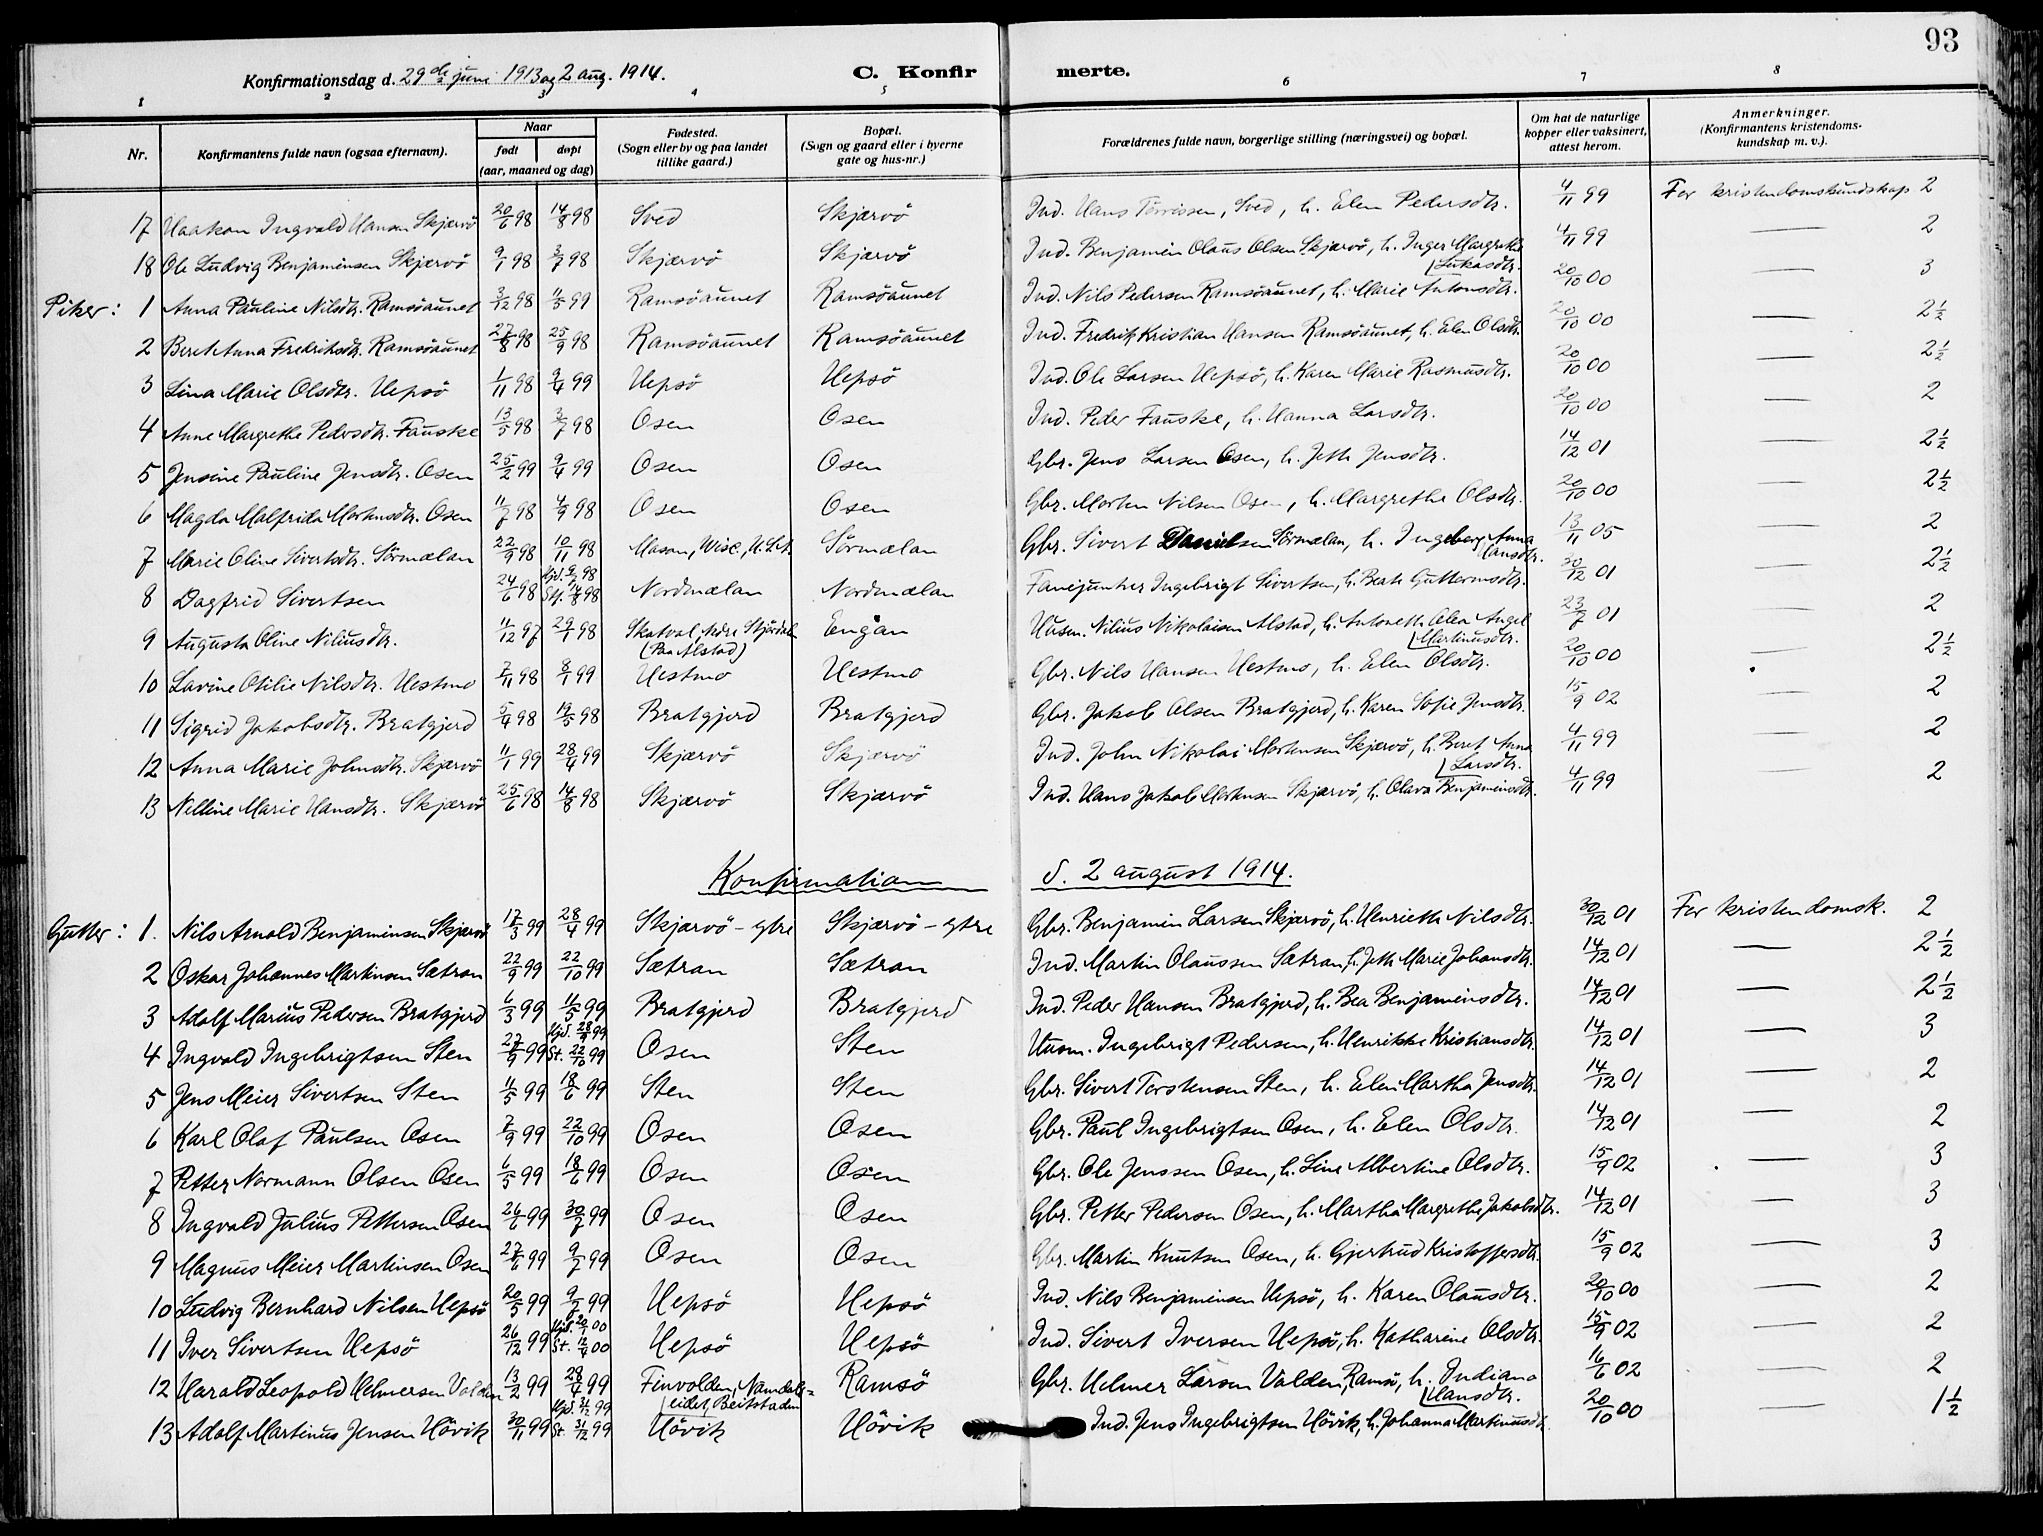 93
Konfirmationsdag d. 29de juni 1913 og 2 aug. 1914. C. Konfirmerte.
1 2 3 4 5 6 7 8
Nr. Konfirmantens fulde navn (ogsaa efternavn). Naar født døpt (aar, maaned og dag) Fødested. (Sogn eller by og paa landet tillike gaard.) Bopæl. (Sogn og gaard eller i byerne gate og hus-nr.) Forældrenes fulde navn, borgerlige stilling (næringsvei) og bopæl. Om hat de naturlige kopper eller vaksinert, attest herom. Anmerkninger. (Konfirmantens kristendoms-kundskap m. v.).
17 Haakon Ingvald Hansen Skjærvö 20/6 98 14/8 98 Sved Skjærvö Ind. Hans Törrissen, Sved, h. Elen Pedersdtr. 4/11 99 For kristendomskundskap 2
18 Ole Ludvig Benjaminsen Skjærvö 9/1 98 3/7 98 Skjærvö Skjærvö Ind. Benjamin Olaus Olsen Skjærvö, h. Inger Margrethe Lukasdtr. 4/11 99 — 2
Piker: 1 Anna Pauline Nilsdtr. Ramsöaunet 3/12 98 11/5 99 Ramsöaunet Ramsöaunet Ind. Nils Pedersen Ramsöaunet, h. Marie Antonsdtr. 20/10 00 — 3
2 Beret Anna Fredriksdtr. Ramsöaunet 27/8 98 25/9 98 Ramsöaunet Ramsöaunet Ind. Fredrik Kristian Hansen Ramsöaunet, h. Elen Olsdtr. 20/10 00 — 2 1/2
3 Lina Marie Olsdtr. Hepsö 1/11 98 9/4 99 Hepsö Hepsö Ind. Ole Larsen Hepsö, h. Karen Marie Rasmusdtr. 20/10 00 — 2 1/2
4 Anne Margrethe Pedersdtr. Fauske 13/5 98 3/7 98 Osen Osen Ind. Peder Fauske, h. Hanna Larsdtr. 20/10 00 — 2
5 Jensine Pauline Jensdtr. Osen 25/2 99 9/4 99 Osen Osen Gbr. Jens Larsen Osen, h. Jette Jensdtr. 14/12 01 — 2 1/2
6 Magda Malfrida Mortensdtr. Osen 11/7 98 4/9 98 Osen Osen Gbr. Morten Nilsen Osen, h. Margrethe Olsdtr. 20/10 00 — 2 1/2
7 Marie Oline Sivertsdtr. Sörmælan 22/9 98 10/11 98 Mason, Wisc., U.S.A. Sörmælan Gbr. Sivert Danielsen Sörmælan, h. Ingeborg Anna Hansdtr. 13/11 05 — 2
8 Dagfrid Sivertsen 24/6 98 Hjd. 9/7 98 Stf. 14/8 98 Nordmælan Nordmælan Fanejunker Ingebrigt Sivertsen, h. Beate Guttormsdtr. 30/12 01 — 2 1/2
9 Augusta Oline Niliusdtr. 11/12 97 29/1 98 Skatval, Nedre Stjørdalen (Paa Alstad) Engan Husm. Nilius Nikolaisen Alstad, h. Antonette Olea Angel Martinusdtr. 23/7 01 — 2
10 Lavine Otilie Nilsdtr. Hestmo 7/11 98 8/1 99 Hestmo Hestmo Gbr. Nils Hansen Hestmo, h. Elen Olsdtr. 20/10 00 — 2 1/2
11 Sigrid Jakobsdtr. Bratgjerd 5/4 98 19/5 98 Bratgjerd Bratgjerd Gbr. Jakob Olsen Bratgjerd, h. Karen Sofie Jensdtr. 15/9 02 — 2
12 Anna Marie Johnsdtr. Skjærvö 11/1 99 28/4 99 Skjærvö Skjærvö Ind. John Nikolai Mortensen Skjærvö, h. Beret Anna Larsdtr. 4/11 99 — 2
13 Nelline Marie Hansdtr. Skjærvö 25/6 98 14/8 98 Skjærvö Skjærvö Ind. Hans Jakob Mortensen Skjærvö, h. Olava Benjaminsdtr. 4/11 99 — 2
Konfirmation d. 2 august 1914.
Gutter: 1. Nils Arnold Benjaminsen Skjærvö 17/3 99 28/4 99 Skjærvö - ytre Skjærvö - ytre Gbr. Benjamin Larsen Skjærvö, h. Henriette Nilsdtr. 30/12 01 For kristendomsk. 2
2 Oskar Johannes Martinsen Sætran 22/9 99 22/10 99 Sætran Sætran Ind. Martin Olaussen Sætran, h. Jette Marie Johansdtr. 14/12 01 — 2 1/2
3 Adolf Marius Pedersen Bratgjerd 6/3 99 11/5 99 Bratgjerd Bratgjerd Ind. Peder Hansen Bratgjerd, h. Bea Benjaminsdtr. 14/12 01 — 2 1/2
4 Ingvald Ingebrigtsen Sten 27/9 99 Hjd. 28/9 99 St. 22/10 99 Osen Sten Husm. Ingebrigt Pedersen, h. Henrikke Kristiansdtr. 14/12 01 — 3
5 Jens Meier Sivertsen Sten 11/5 99 18/6 99 Sten Sten Gbr. Sivert Torstensen Sten, h. Elen Martha Jensdtr. 14/12 01 — 2
6 Karl Olaf Paulsen Osen 7/9 99 22/10 99 Osen Osen Gbr. Paul Ingebrigtsen Osen, h. Elen Olsdtr. 14/12 01 — 2
7 Petter Normann Olsen Osen 6/5 99 18/6 99 Osen Osen Gbr. Ole Jenssen Osen, h. Line Albertine Olsdtr. 15/9 02 — 3
8 Ingvald Julius Pettersen Osen 26/6 99 30/7 99 Osen Osen Gbr. Petter Pedersen Osen, h. Martha Margrethe Jakobsdtr. 14/12 01 — 3
9 Magnus Meier Martinsen Osen 27/6 99 9/7 99 Osen Osen Gbr. Martin Knutsen Osen, h. Gjertrud Kristoffersdtr. 15/9 02 — 3
10 Ludvig Bernhard Nilsen Hepsö 20/5 99 9/7 99 Hepsö Hepsö Ind. Nils Benjaminsen Hepsö, h. Karen Olausdtr. 20/10 00 — 2
11 Iver Sivertsen Hepsö 26/12 99 Hjd. 20/1 00 St. 12/4 00 Hepsö Hepsö Ind. Sivert Iversen Hepsö, h. Katharine Olsdtr. 15/9 02 — 2
12 Harald Leopold Helmersen Valden 13/2 99 28/4 99 Finvolden, Namdalseidet, Beitstaden Ramsö Gbr. Helmer Larsen Valden, Ramsö, h. Indiana Hansdtr. 16/6 02 — 2
13 Adolf Martinus Jensen Hövik 30/11 99 Hjd. 3/12 99 St. 31/12 99 Hövik Hövik Ind. Jens Ingebrigtsen Hövik, h. Johanna Martinusdtr. 20/10 00 — 1 1/2